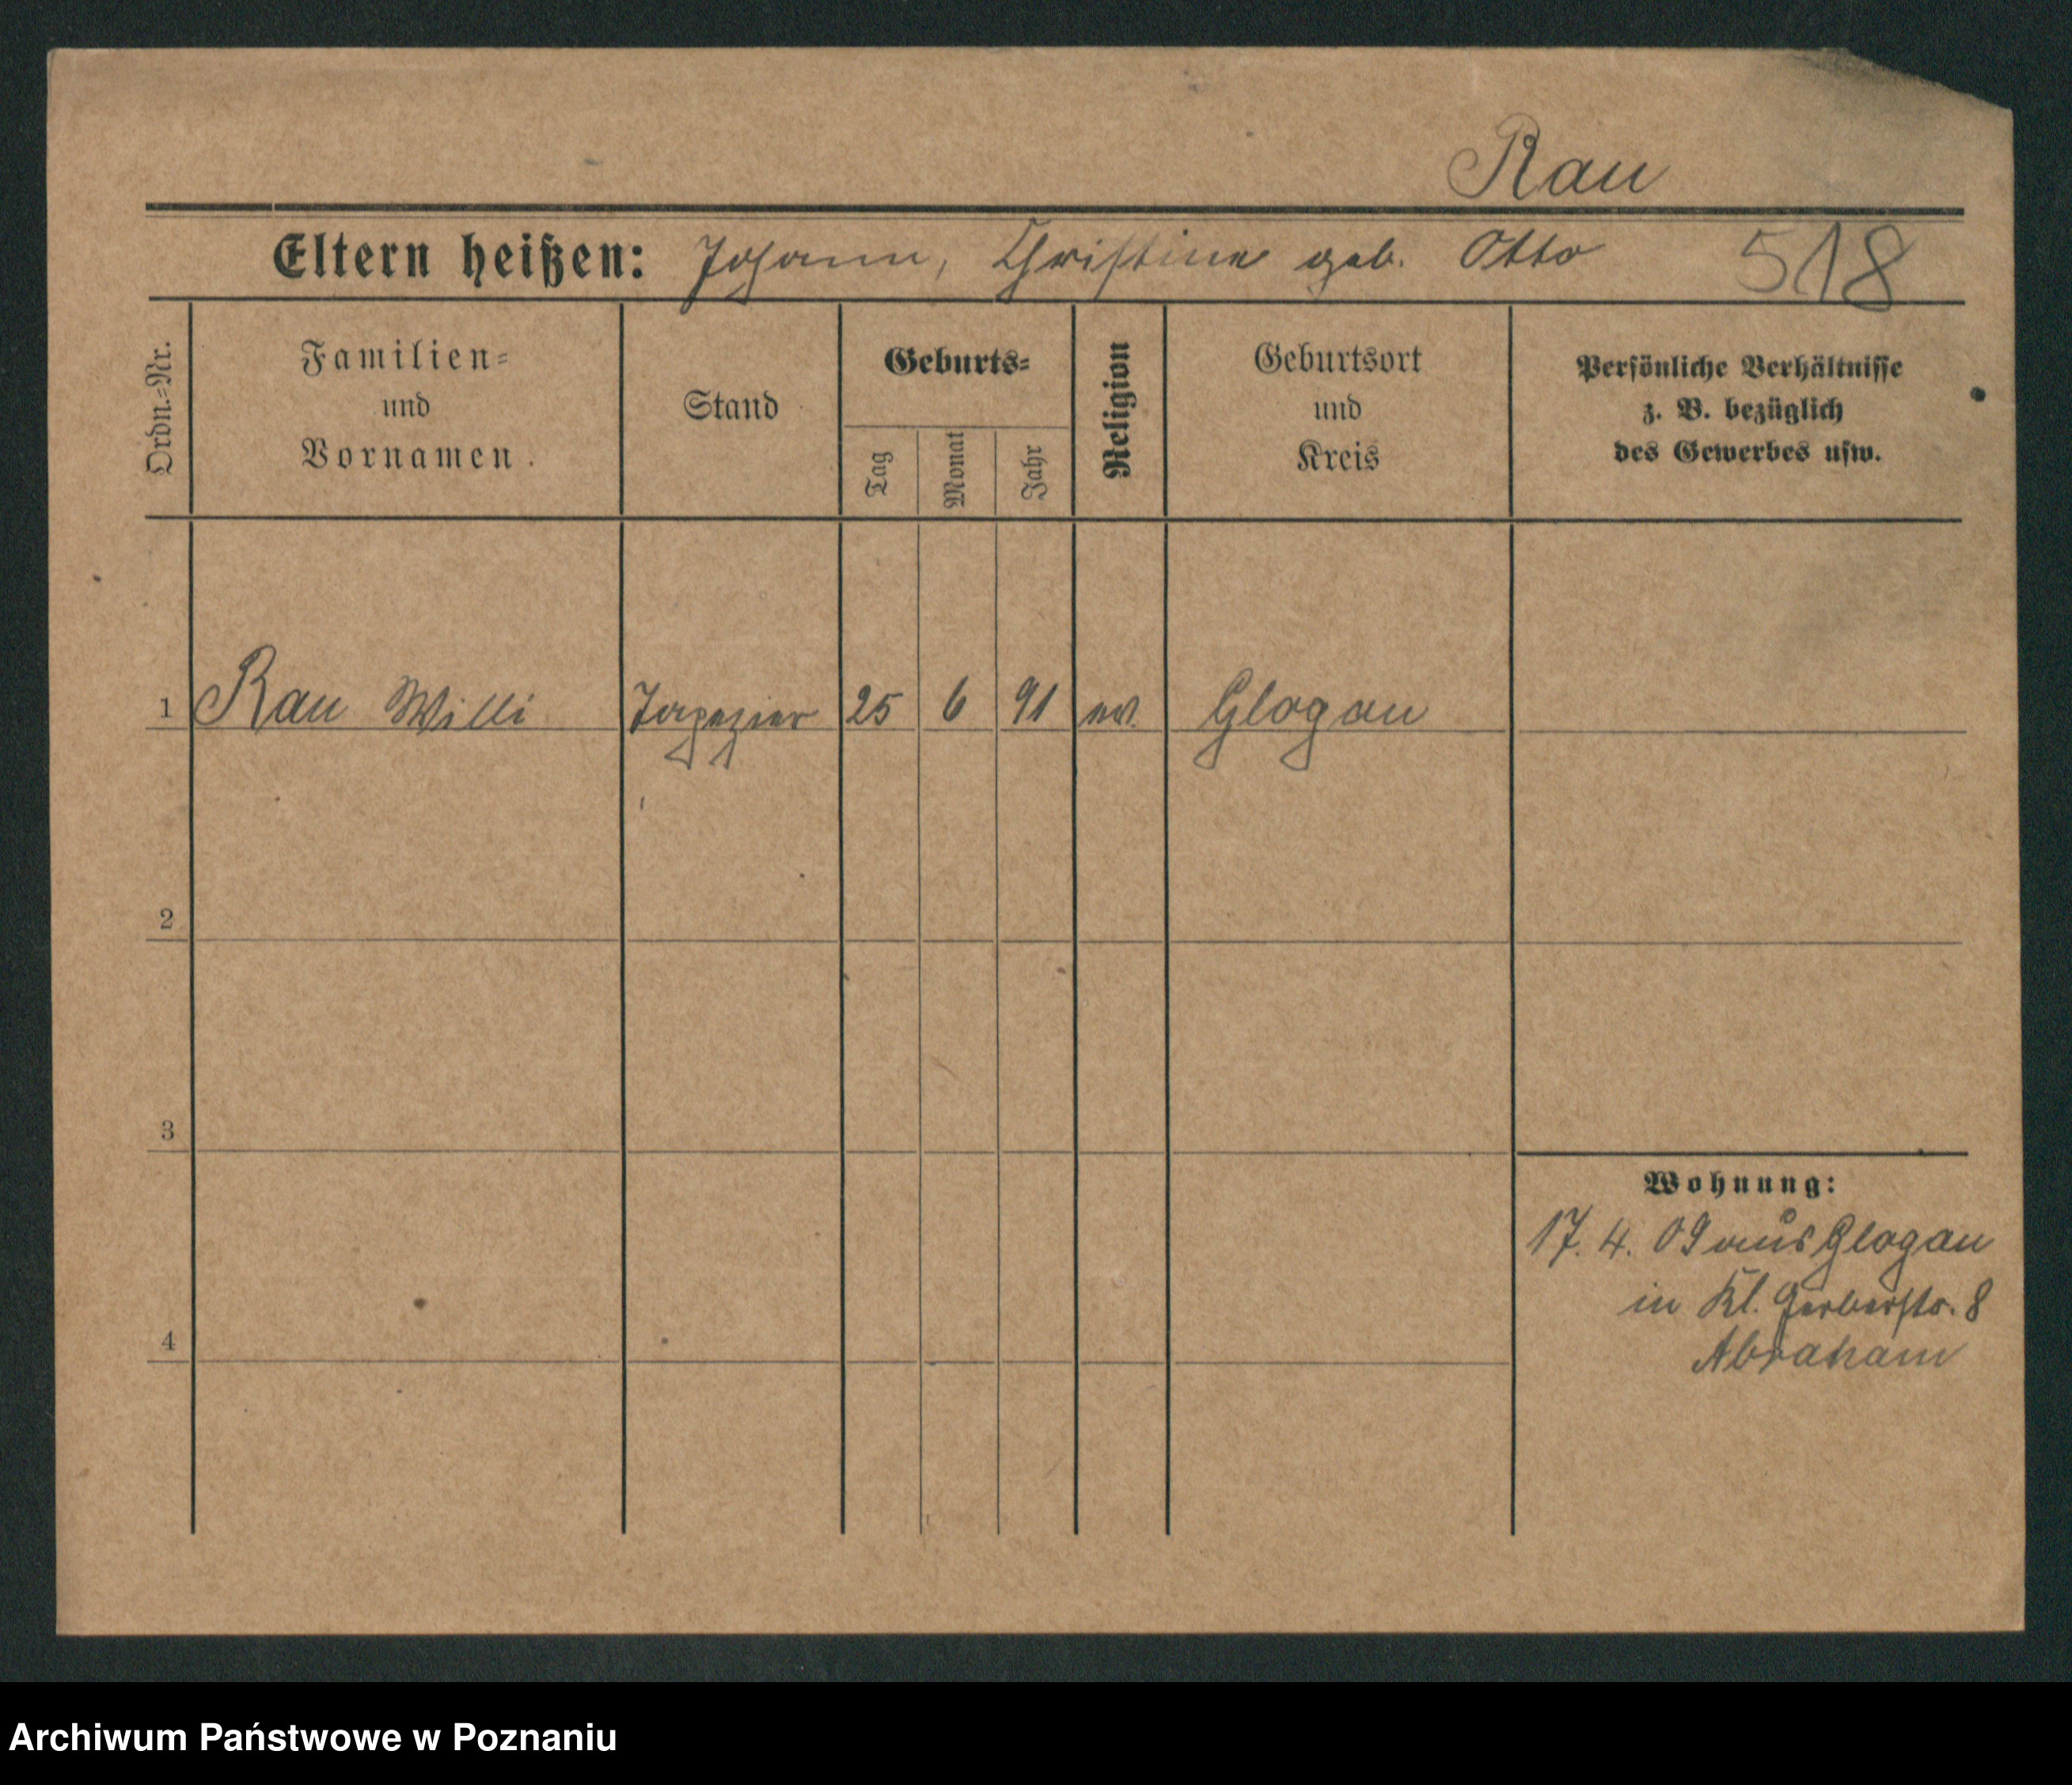 Rau
Eltern heißen: Johann, Christine geb. Otto 518
Ordn.-Nr.
Familien-
und
Vornamen.
Stand
Geburts-
Tag
Monat
Jahr
Religion
Geburtsort
und
Kreis
Persönliche Verhältnisse
z. B. bezüglich
des Gewerbes usw.
1 Rau Willi Tapezier 25 6 91 ev. Glogau
2
3
Wohnung:
17. 4. 09 aus Glogau
in Kl. Gerberstr. 8
Abraham
4
Archiwum Państwowe w Poznaniu